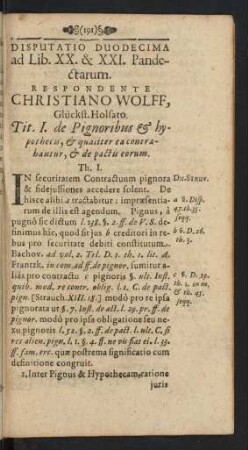 (191)
DISPUTATIO DUODECIMA
ad Lib. XX. & XXI. Pande-
ctarum.
RESPONDENTE
CHRISTIANO WOLFF,
Glückst. Holsato.
Tit. I. de Pignoribus & hy-
pothecis, & qualiter ea contra-
hantur, & de pactis eorum.
Th. I.
IN securitatem Contractuum pignora
& fidejussiones accedere solent. De
hisce alibi a tractabitur: impræsentia-
rum de illis est agendum. Pignus, à
pugnô sic dictum l. 238. §. 2. ff. de V. S. de-
finimus hîc, quod sit jus b creditori in re-
bus pro securitate debiti constitutum.
Bachov. ad vol. 2. Tr. D. 1. th. 1. lit. A.
Frantzk. in com. ad ff. de pignor. sumitur a-
liàs pro contractu c pignoris §. ult. Inst.
quib. mod. re contr. oblig. l. 1. C. de pact.
pign. [Strauch. XIII. 18.] modò pro re ipsa
pignorata ut §. 7. Inst. de act. l. 29. pr. ff. de
pignor. modò pro ipsa obligatione seu ne-
xu pignoris l. 52. §. 2. ff. de pact. l. ult. C. si
res alien. pign. l. 1. §. 4. ff. ne vis fiat ei. l. 35.
ff. fam. erc. quæ postrema significatio cum
definitione congruit.
2. Inter Pignus & Hypothecam, ratione
juris
Dn. Struv.
a B. Disp.
seqq.
b D. 26.
th. 3.
seqq.